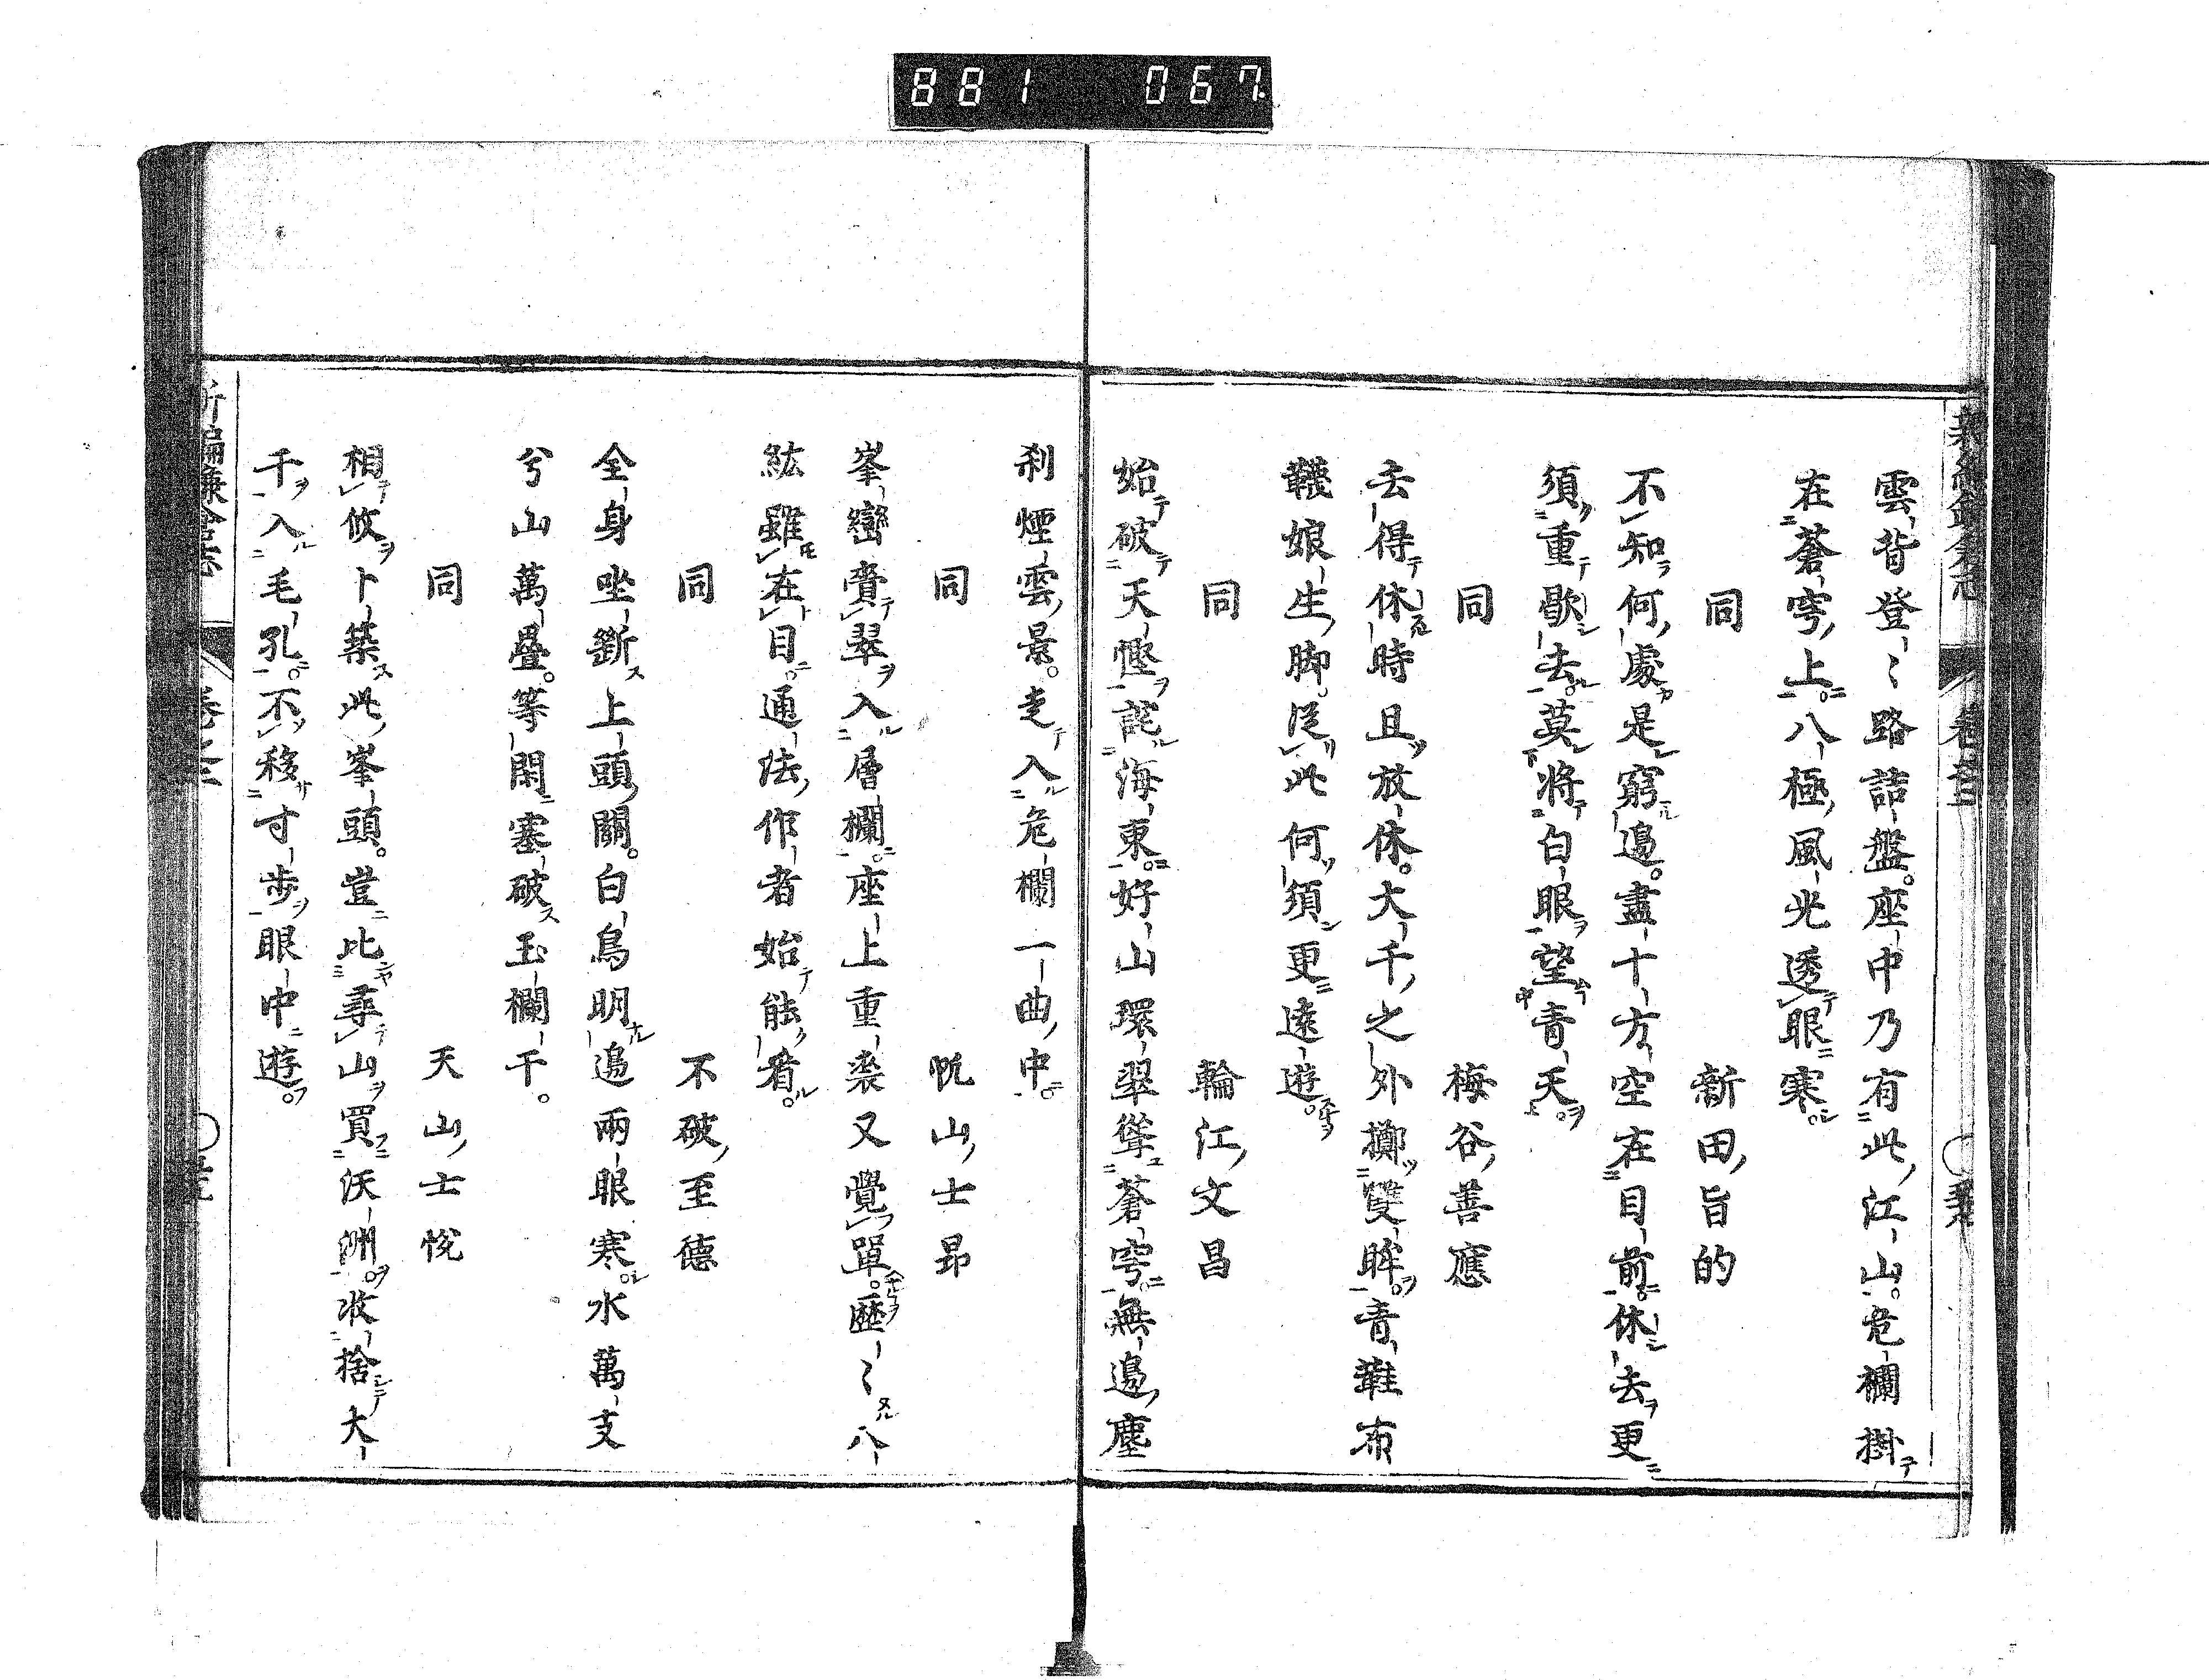 881 067
雲背登〻路詰盤。座中乃有此江山。危欄掛
在蒼穹上。八極風光透眼寒。
同 新田旨的
不知何處是窮邊。盡十方空在目前。休去更
須重歇去。莫將白眼望青天。
同 梅谷善應
去得休時且放休。大千之外擲雙眸。青鞋布
韈娘生脚。從此何須更遠遊。
同 輪江文昌
始破天慳詫海東。好山環翠聳蒼穹。無邊塵
刹煙雲景。走入危欄一曲中。
同 帆山士昻
峯巒賷翠入層欄。座上重裘又覺單。歷〻八
紘雖在目。通法作者始能看。
同 不破至德
全身坐斷上頭關。白鳥明邊兩眼寒。水萬支
兮山萬疊。等閑塞破玉欄干。
同 天山士悅
相攸卜築此峯頭。豈比尋山買沃洲。收捨大
千入毛孔。不移寸步眼中遊。
新編鎌倉志 卷之三